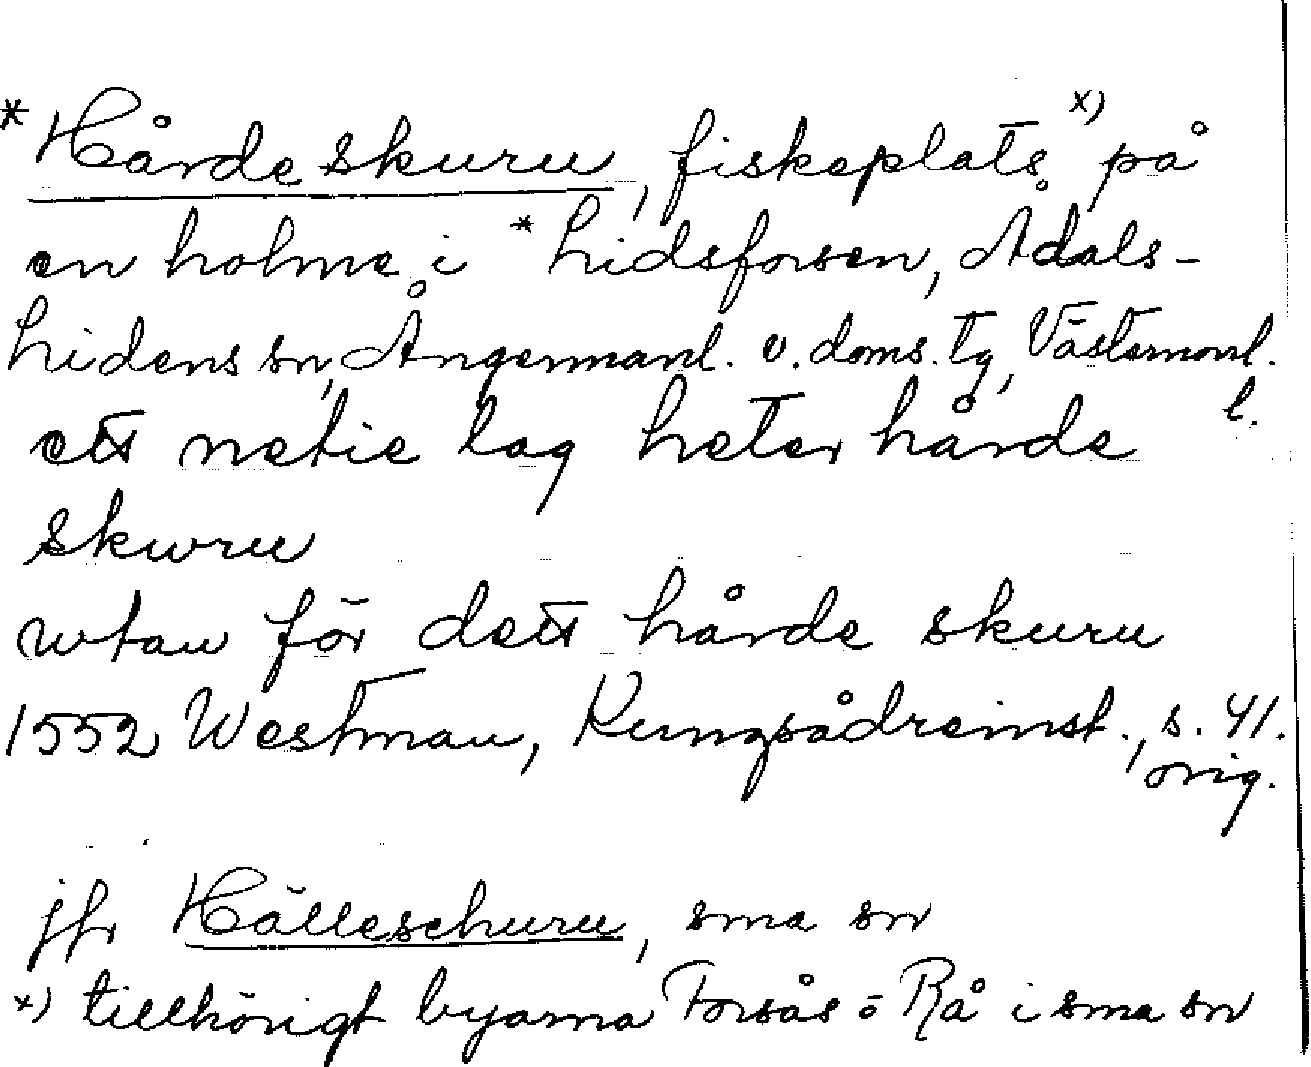 * Hårde skuru, fiskeplats x) på
en holme i * Lidsforsen, Ådals-
Lidens sn, Ångermanl. v. doms. tg, Västernorrl.
l.
ett netie lag heter hårde
skwru
wtan för dett hårde skuru
1552 Westman, Kungsådreinst., s. 41.
orig.
jfr Hälleschuru, sma sn
x) tillhörigt byarna Forsås o Rå i sma sn